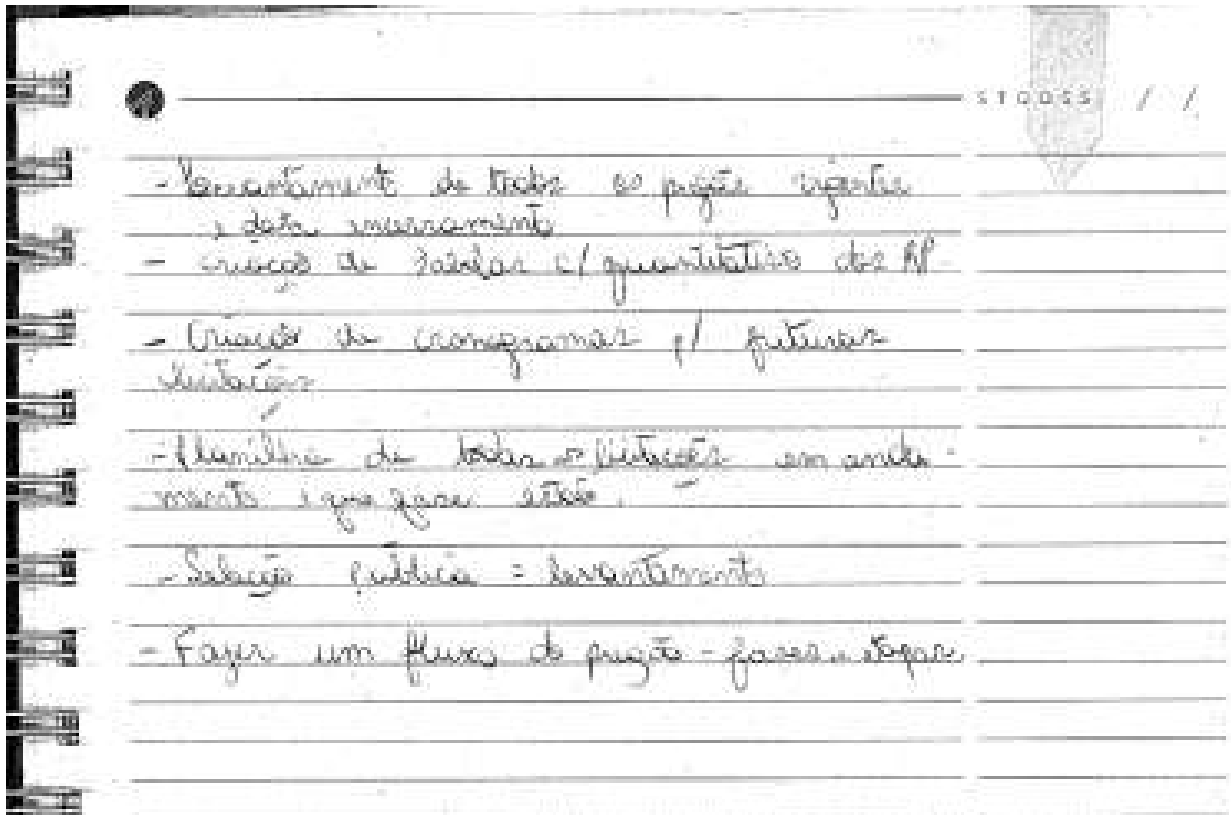 STQQSS / /
- Levantamento de todos os projetos vigentes
e data encerramento
- criação de tabelas c/ quantitativo dos RP
- Criação de cronogramas p/ futuras
licitações
- Planilha de todas as licitações em anda-
mento e que fase estão.
- Seleção pública = levantamento
- Fazer um fluxo do projeto - fases e etapas